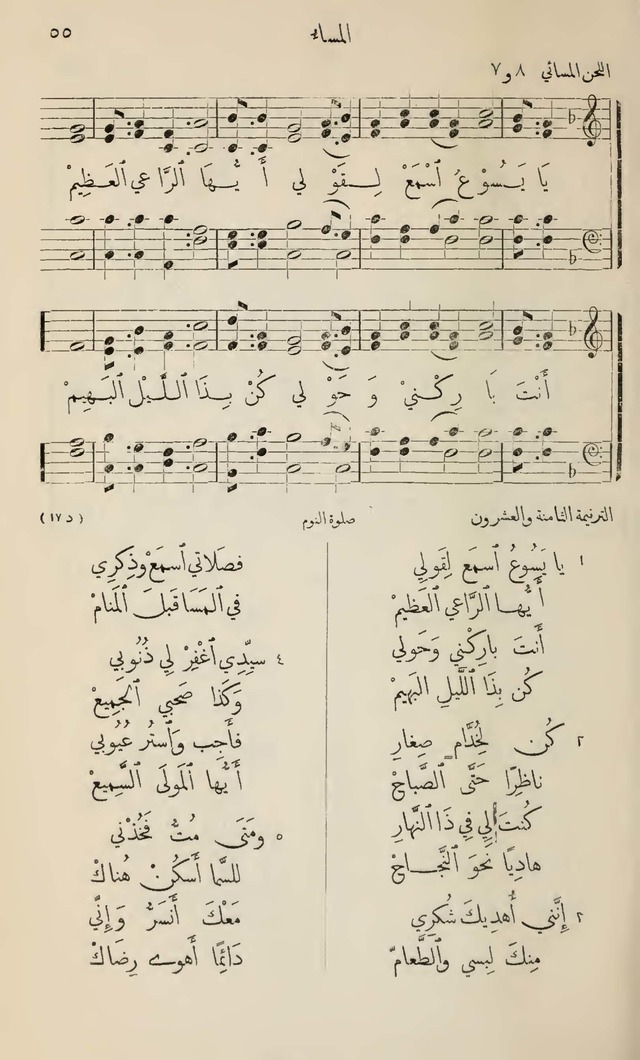 المساء ٥٥
اللحن المسائي ٨ و ٧
يَا يَــسُــوْعُ ٱسْمَعْ لِــقَوْ لي أَ يُّــهَا ٱلرَّا عي العَـظِـيْمْ
أَنْتَ بَا رِكْــنيْ وَ حَوْ لي كُنْ بِــذَا ٱللَّيْل البَــهِيمْ
الترنيمة الثامنة والعشرون صلوة النوم (د ١٧)
١ يا يَسُوعُ ٱسمَع لِقَولِي
أَيُّها ٱلرَّاعي العَظِيمْ
أَنتَ بارِكْني وَحَولي
كُن بِذَا ٱللَّيلِ البَهِيمْ
٢ كُن لِخُدَّامٍ صِغارِ
ناظِرًا حَتَّى ٱلصَّباحْ
كُنتَ لي في ذَا ٱلنَّهارِ
هادِيًا نَحوَ ٱلنَّجاحْ
٢ إِنَّني أُهدِيكَ شُكرِي
مِنكَ لِبسي وٱلطَّعامْ
فصَلاتي ٱسمَعْ وذِكرِي
في ٱلمَسَا قَبلَ ٱلمَنامْ
٤ سيِّدِي ٱغْفِرْ لِي ذُنُوبي
وَكَذَا صَحبي ٱلجَمِيعْ
فأَجِب وَٱستُر عُيُوبي
أَيُّها ٱلمَولَى ٱلسَّمِيعْ
٥ ومَتَى مُتُّ فَخُذْني
للسَّما أَسكُنْ هُناكْ
مَعْكَ أَنسَرُّ وَإِنِّي
دَائِمًا أَهوى رِضَاكْ